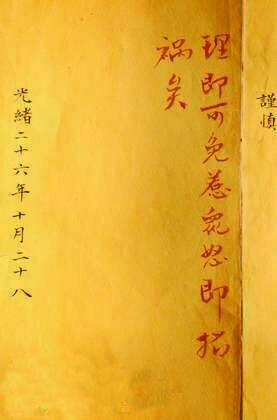 謹慎
理即可免惹眾怒即招
祸矣
光緒二十六年十月二十八